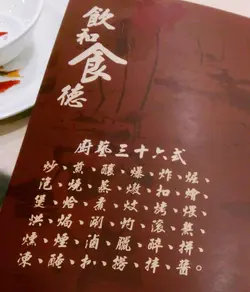 飲和食德
廚藝三十六式
炒、煎、釀、爆、炸、
泡、燒、蒸、燉、扣、燴、
煲、烚、煮、炆、烤、煨、
烘、焗、涮、灼、滾、熬、
燻、煙、滷、臘、醉、拼、
凍、醃、扒、撈、拌、醬。